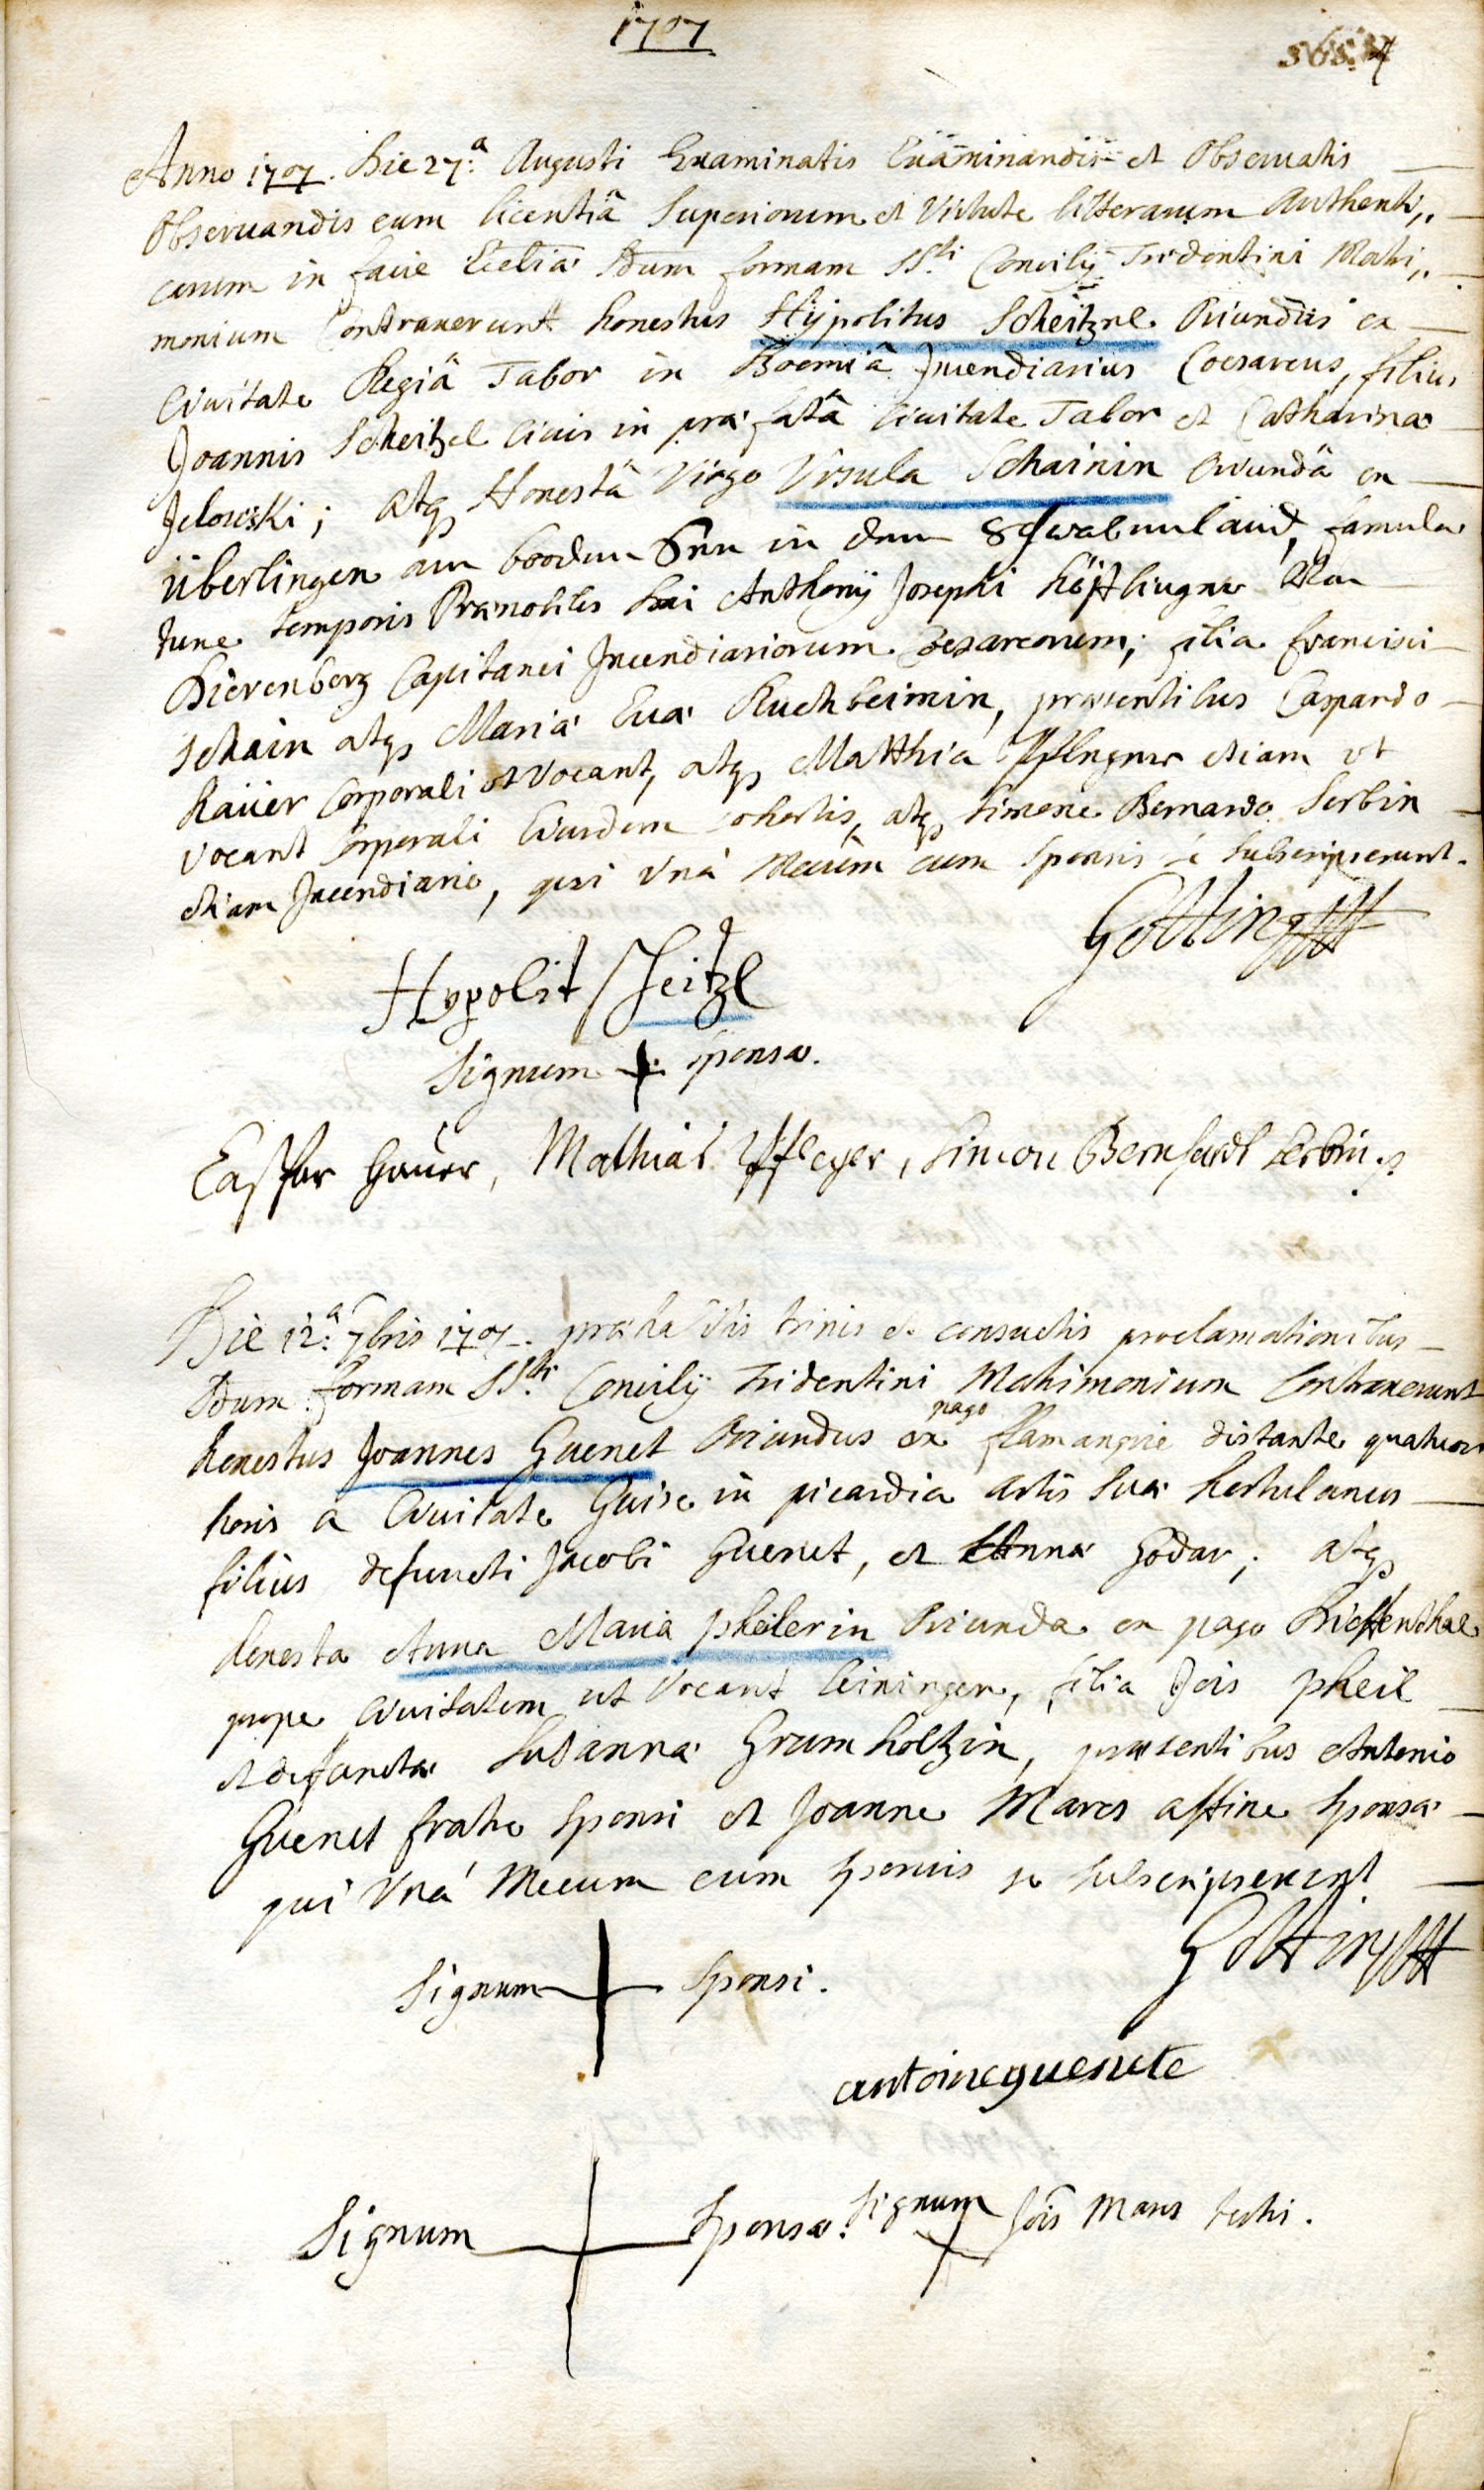 1707
Anno 1707. Die 27.a Augusti Examinatis Examinandis et Obseruatis
Obseruandis cum licentiâ Superiorum et Virtute litterarum Authenti,,
carum in facie Eccliæ Scdum formam SS.ti Concilÿ Tridentini Matri,,
monium Contraxerunt honestus Hÿpolitus Scheitzel Oriundus ex
Civitate Regiâ Tabor in Boemiâ Incendiarius Coesareus, filius
Joannis Scheitzel Civis in præfatâ Civitate Tabor et Catharinæ
Jelowski; atq Honestâ Virgo Vrsula Schainin Oriundâ ex
Überlingen am boodem See in dem Schwabenland, famula
tunc temporis Prænobilis Dni Anthonÿ Josephi höfflinger Von
Dierenberg Capitanei Incendiariorum Cesareorum; filia Francisci
Schain atq Maria Eva Ruchheimin, præsentibus Casparo
Haüer Corporali vt Vocant, atq Matthia Pfleger etiam vt
Vocant Corporali Eiusdem Cohortis, atq Simone Bernardo Serbin
etiam Incendiario, qui Vnà Mecum cum Sponsis se Subscripserunt.
Hypolit Scheitzl
Signum + Sponsæ.
Caspar Haüer, Mathias Pfleger, Simon Bernhardt Serbin
Die 12.a 7bris 1707. præhabitis trinis et consuetis proclamationibus
Scdum formam SS.ti Concilÿ Tridentini Matrimonium Contraxerunt
honestus Joannes Guenet Oriundus ex pago flamangrie distante quatuor
horis a Civitate Guise in picardia artis Suæ hortulanus
filius defuncti Jacobi Guenet, et Annæ Godar; atq
honesta Anna Maria pheilerin Oriunda ex pago Dieffenthal
prope Civitatem ut Vocant Leiningen, filia Jois pheil
et defunctæ Susannæ Grumholtzin, præsentibus Antonio
Guenet fratre Sponsi et Joanne Mares affine Sponsæ
qui Vná Mecum cum Sponsis se Subscripserunt
Signum + Sponsi.
antoine guenete
Signum + Sponsæ. Signum + Jois Mares testis.